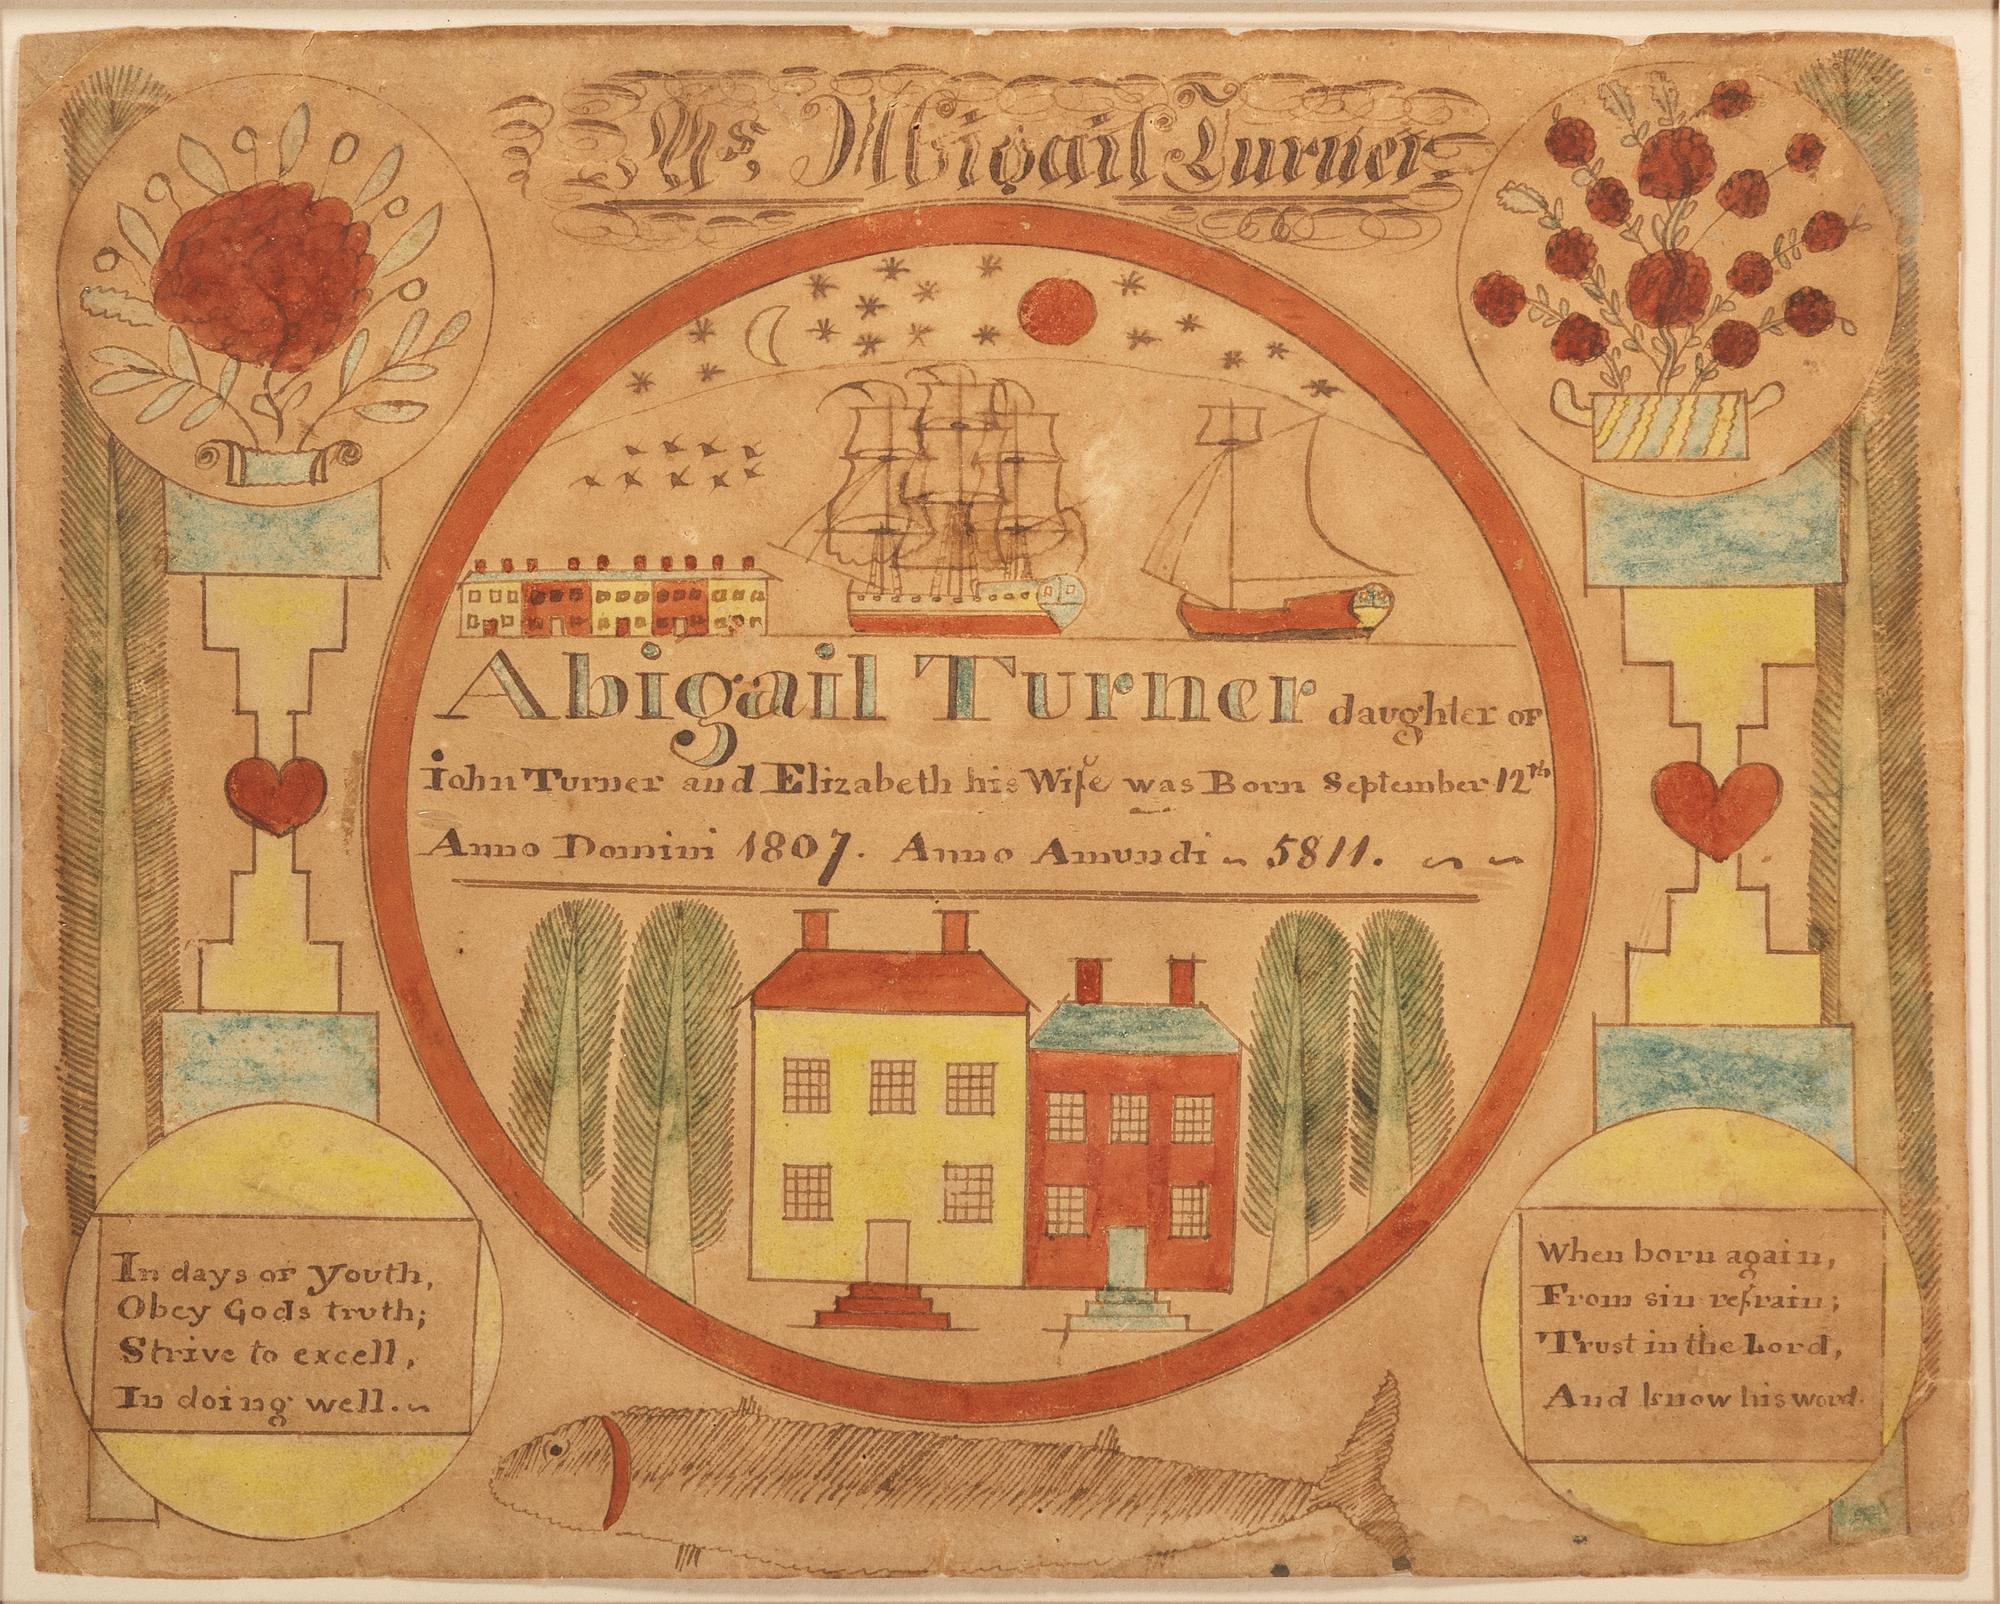 Ms. Abigail Turner
Abigail Turner daughter of
Iohn Turner and Elizabeth his Wife was Born September 12th
Anno Domini 1807. Anno Amundi ~ 5811. ~ ~
In days of youth,
Obey Gods truth;
Strive to excell,
In doing well. ~
When born again,
From sin refrain;
Trust in the Lord,
And know his word.